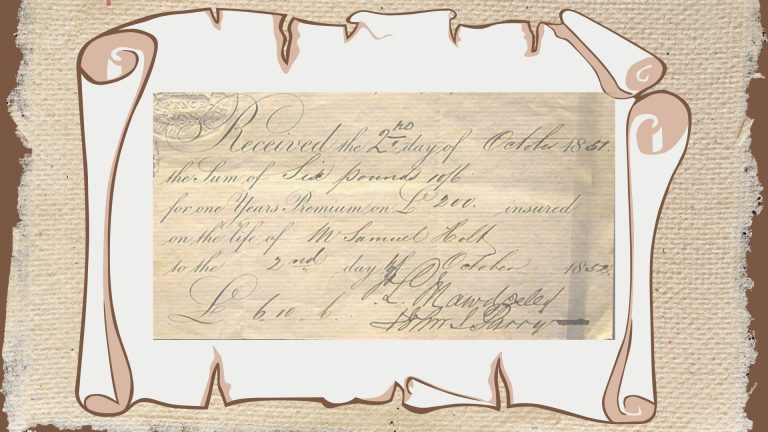 PENCE
Received the 2nd day of October 1851.
the Sum of Six pounds 10/6
for one Years Premium on £ 200. insured
on the life of Mr Samuel Holt
to the 2nd day of October 1852.
£ 6.10.6.